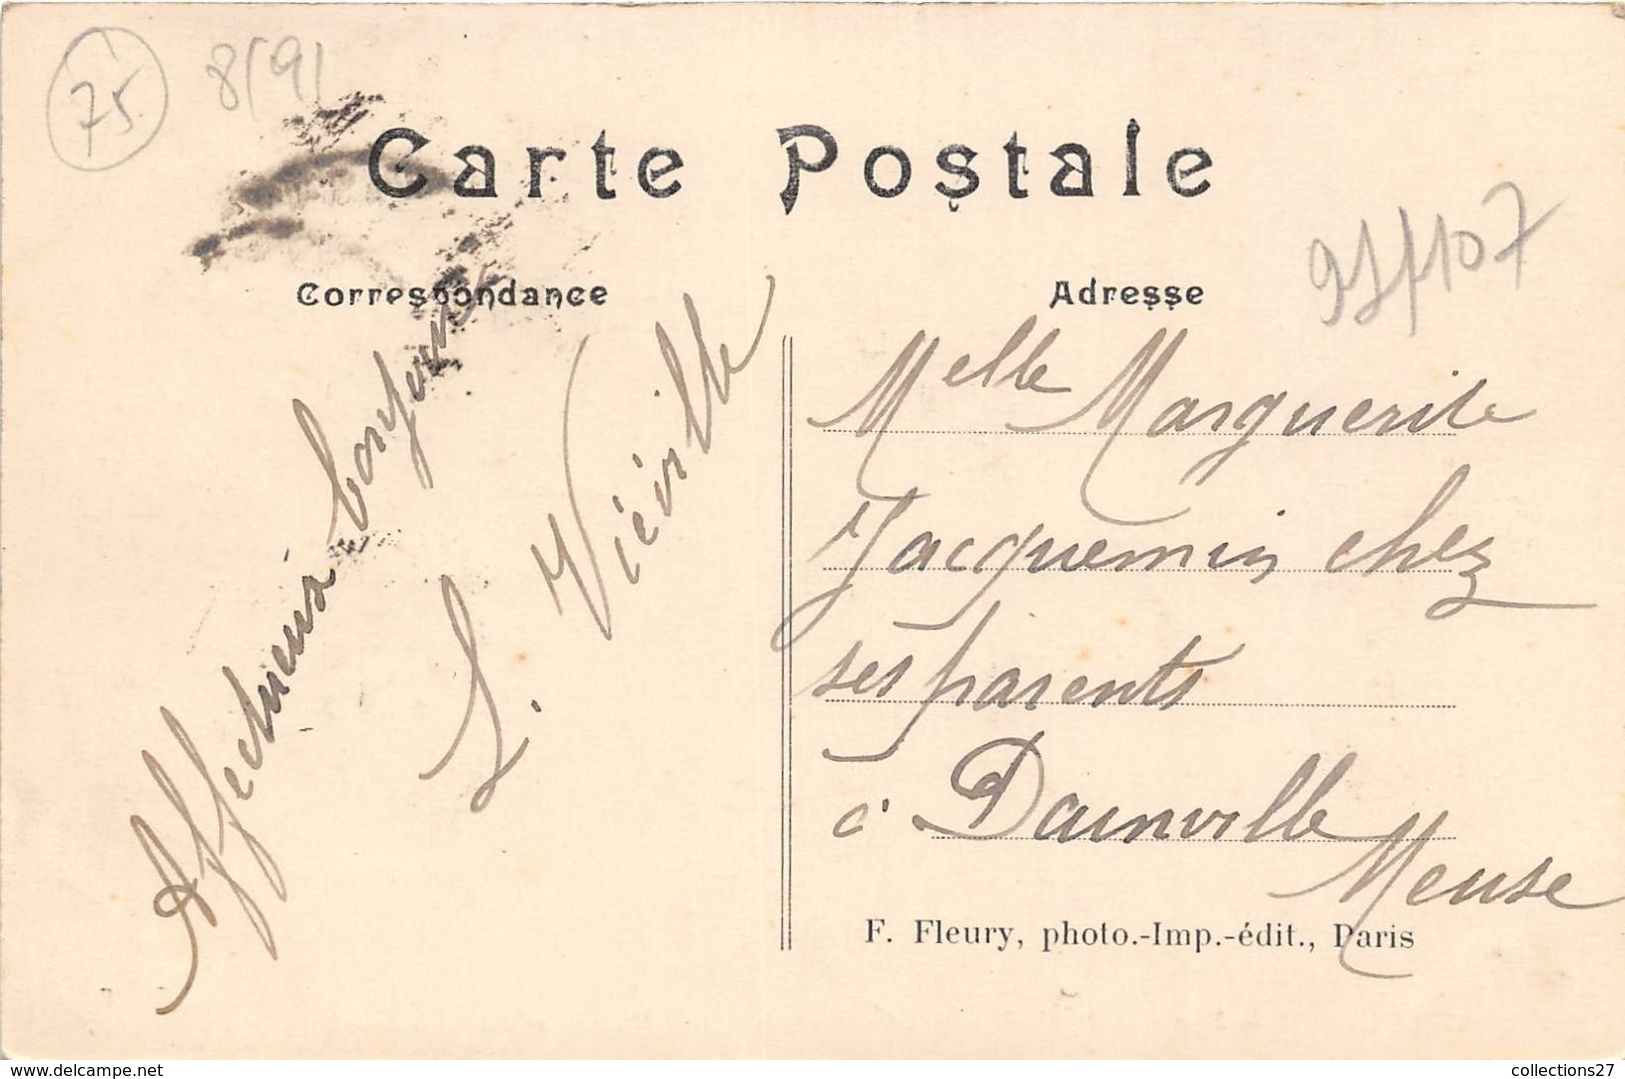 75
8/91
Carte Postale
Correspondance
Adresse
Affectueux bonjours
L. Viéville
Melle Marguerite
Jacquemin chez
ses parents
à Dainville
Meuse
F. Fleury, photo.-Imp.-édit., Paris
collections27